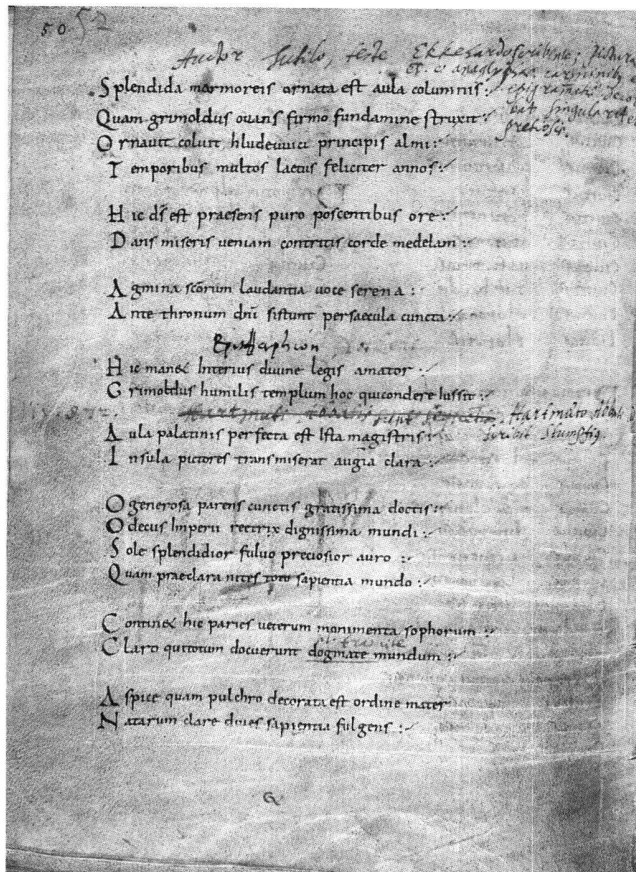 50 52
Auctor Tutilo, teste Ekkehardo scribente; pictura
carminibus
Splendida marmoreis ornata est aula columnis
epigrammatis
Quam grimoldus ouans firmo fundamine struxit
singularit
Ornauit coluit hludeuuici principis almi
pretiosis.
Temporibus multos laetus feliciter annos
Hic ds̄ est praesens puro poscentibus ore
Dans miseris ueniam contritis corde medelam
Agmina scōrum laudantia uoce serena
Ante thronum dnī sistunt persaecula cuncta
Epitaphion
Hic manet Interius diuine legis amator
Grimoldus humilis templum hoc quicondere Iussit
Hartmuto Abbati
Aula palatinis perfecta est Ista magistris
scribit Stumpfig
Insula pictores transmiserat augia clara
O generosa parens cunctis gratissima doctis
O decus Imperii rectrix dignissima mundi
Sole splendidior fuluo preciosior auro
Quam praeclara nites toto sapientia mundo
Continet hic paries ueterum monimenta sophorum
Claro qui totum docuerunt dogmate mundum
Aspice quam pulchro decorata est ordine mater
Natarum clare diues sapientia fulgens